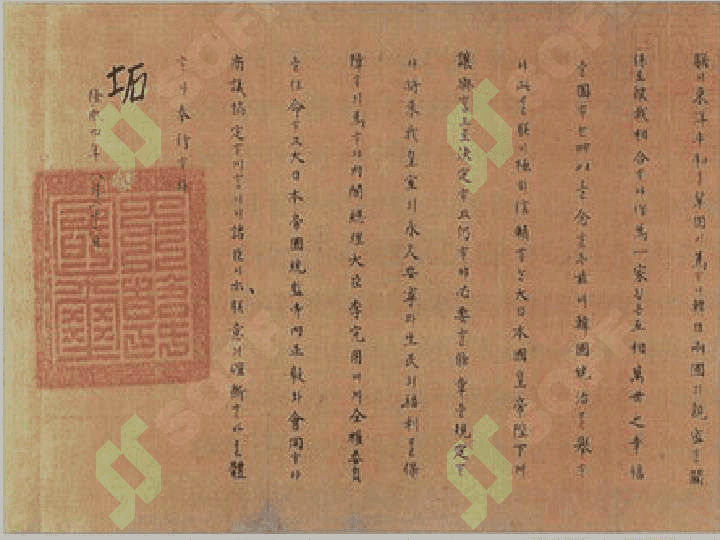 朕이 東洋平和를 鞏固히 爲ᄒᆞ야 韓日兩國의 親密ᄒᆞᆫ 關
係로 彼我相合ᄒᆞ야 作爲一家ᄒᆞᆷ은 互相萬世之幸福
을 圖ᄒᆞᄂᆞᆫ 所以로 念ᄒᆞᆫ즉 玆에 韓國統治를 擧ᄒᆞ
야 此를 朕이 極히 信賴ᄒᆞᄂᆞᆫ 大日本國皇帝陛下ᄭᅴ
讓與ᄒᆞᆷ을 決定ᄒᆞ고 仍ᄒᆞ야 必要ᄒᆞᆫ 條章을 規定ᄒᆞ
야 將來我皇室의 永久安寧과 生民의 福利를 保
障ᄒᆞ기 爲ᄒᆞ야 內閣總理大臣李完用에게 全權委員
을 任命ᄒᆞ고 大日本帝國統監寺內正毅와 會同ᄒᆞ야
商議協定ᄒᆞ게 ᄒᆞ노니 諸臣이 亦朕意의 確斷ᄒᆞᆫ 바를 體
ᄒᆞ야 奉行ᄒᆞ라
坧
隆熙四年